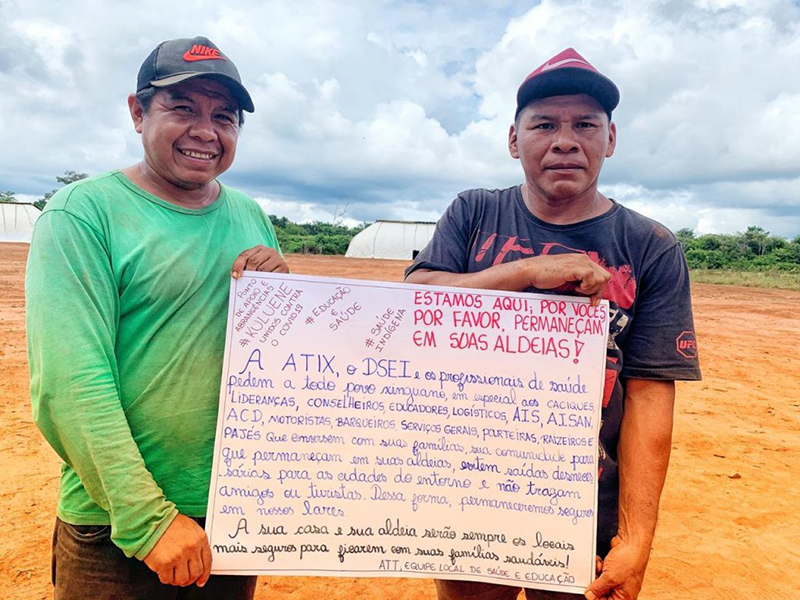 NIKE
UFC
PONTO
DE APOIO E
ABRANGÊNCIAS
# KULUENE
UNIDOS CONTRA
O COVID19
# EDUCAÇÃO
E
SAÚDE
# SAÚDE
INDÍGENA
ESTAMOS AQUI, POR VOCÊS
POR FAVOR, PERMANEÇAM
EM SUAS ALDEIAS!
A ATIX, O DSEI e os profissionais de saúde
pedem a todo povo xinguano, em especial aos CACIQUES,
LIDERANÇAS, CONSELHEIROS, EDUCADORES, LOGÍSTICOS, AIS, AISAN,
ACD, MOTORISTAS, BARQUEIROS, SERVIÇOS GERAIS, PARTEIRAS, RAIZEIROS E
PAJÉS que conversem com suas famílias, sua comunidade para
que permaneçam em suas aldeias, evitem saídas desneces
sárias para as cidades do entorno e não tragam
amigos ou turistas. Dessa forma, permaneceremos seguros
em nossos lares.
A sua casa e sua aldeia serão sempre os locais
mais seguros para ficarem com suas famílias saudáveis!
ATT, EQUIPE LOCAL DE SAÚDE E EDUCAÇÃO